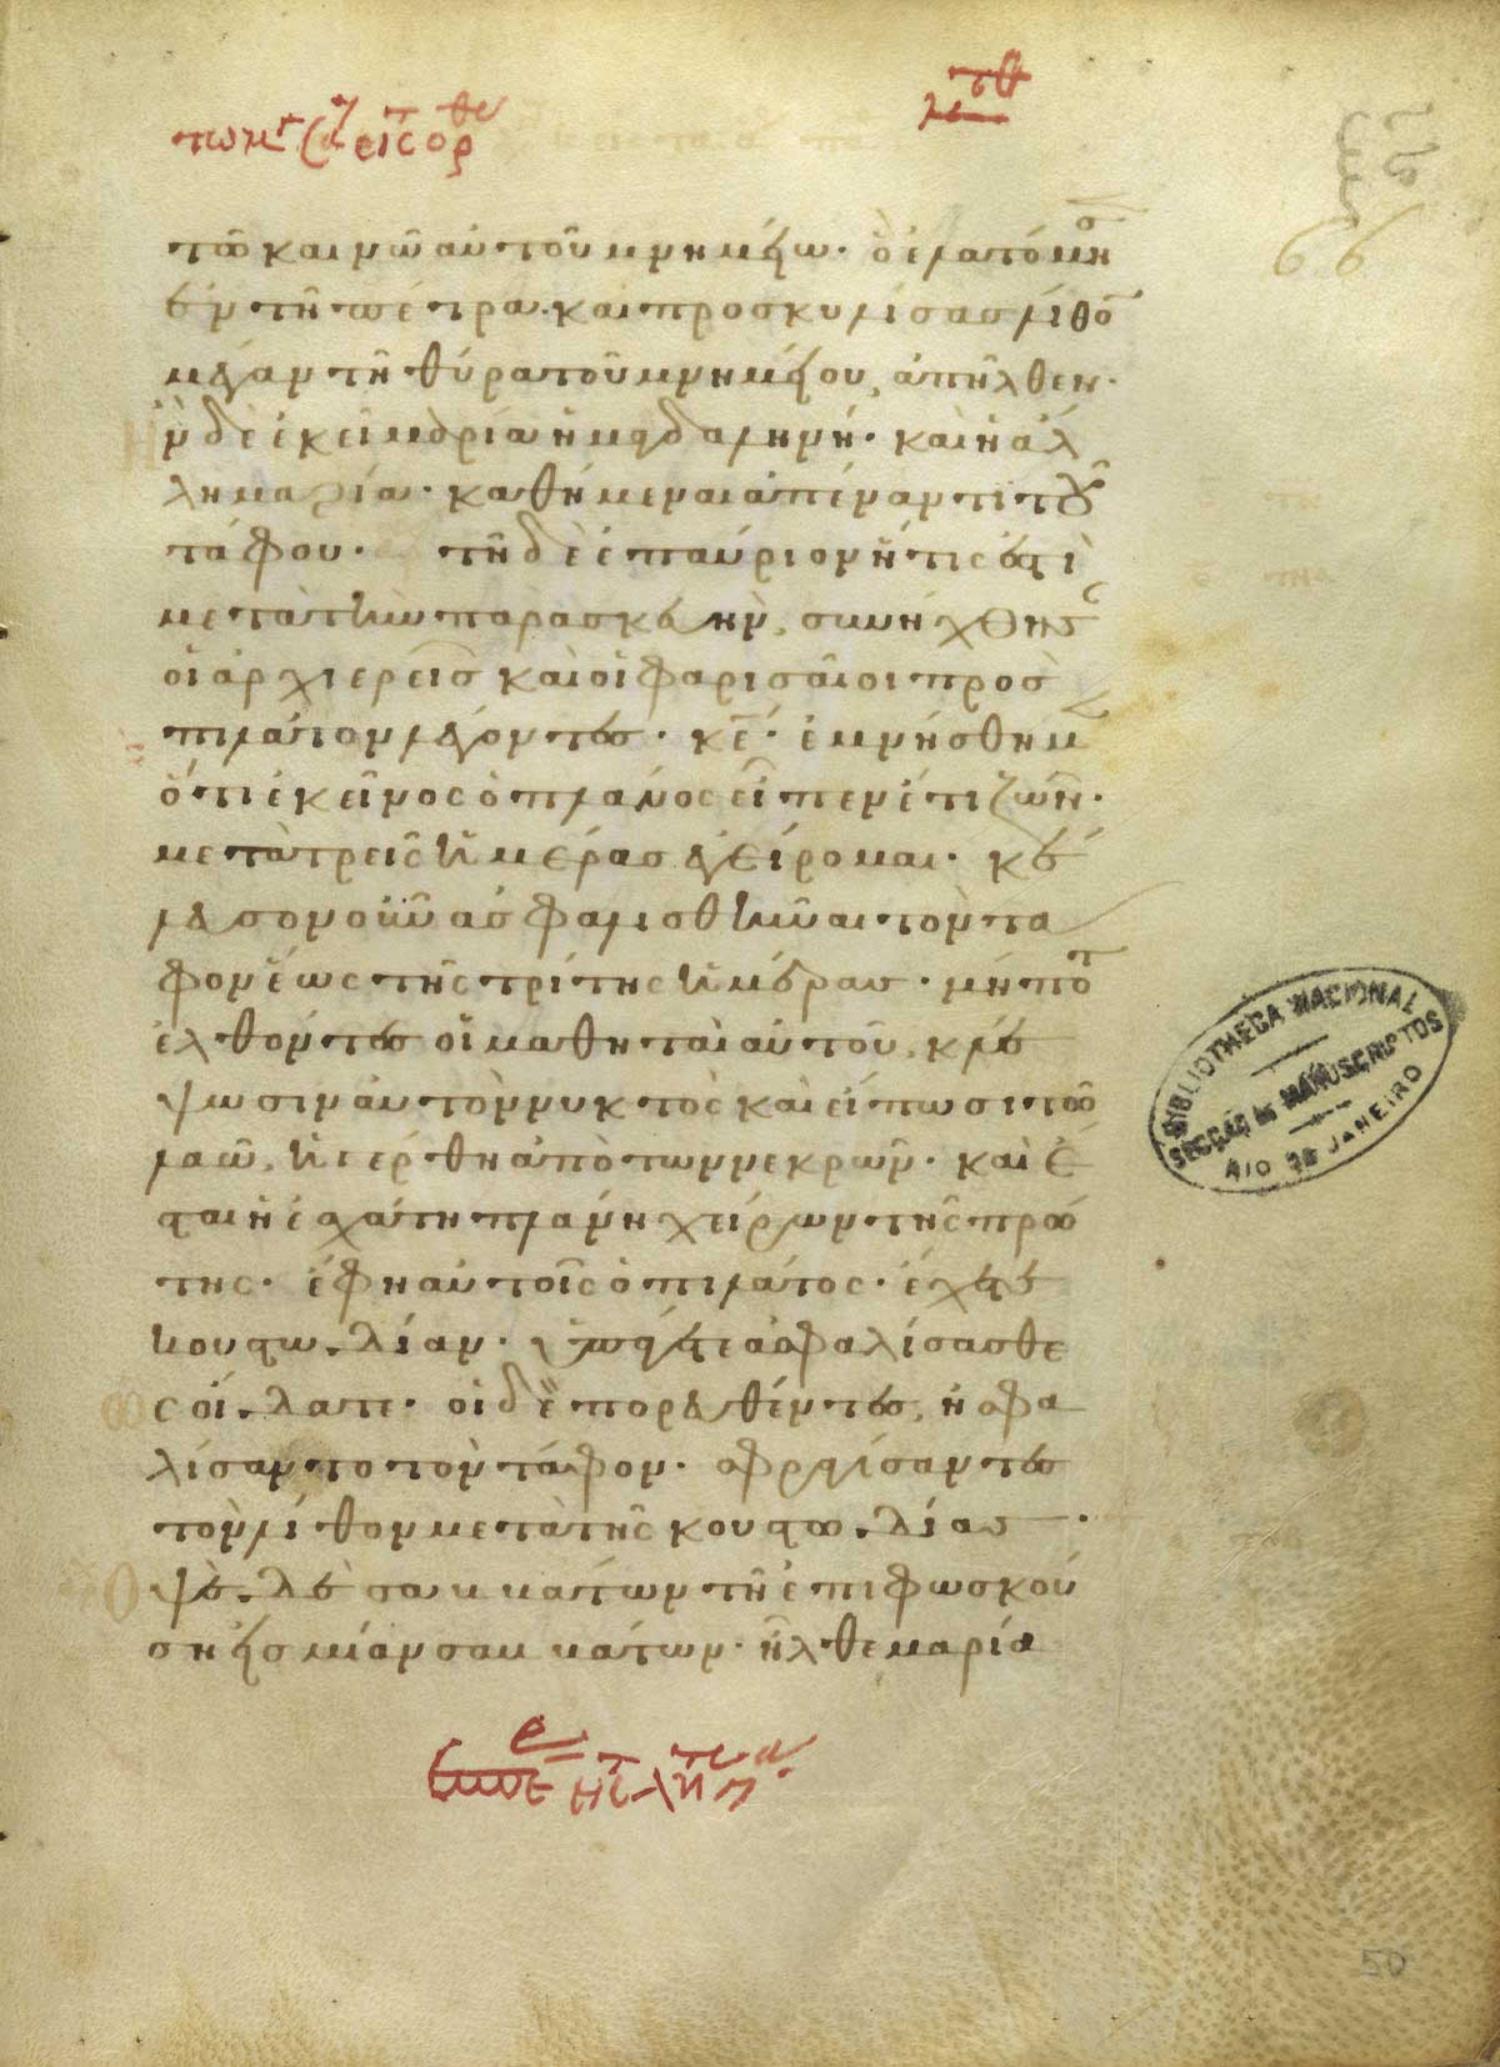 τῶ καινῶ αὐτοῦ μνημείω. ὃ ἐλατόμη
σεν τῆ πέτρα. καὶ προσκυλίσας λίθο
μέγαν τῆ θύρα τοῦ μνημείου, ἀπῆλθεν.
ἦν δὲ ἐκεῖ μαρία ἡ μαγδαληνή. καὶ ἡ ἄλ
λη μαρία. καθήμεναι ἀπέναντι τοῦ
τάφου. τῆ δὲ ἐπαύριον ἥτις ἐστὶ
μετὰ τὴν παρασκευὴν, συνήχθησ
οἱ ἀρχιερεῖς καὶ οἱ φαρισαῖοι πρὸς
πιλάτον λέγοντες. κε. ἐμνήσθημ
ὅτι ἐκεῖνος ὁ πλάνος εἶπεν ἔτι ζῶν.
μετὰ τρεῖς ἡμέρας ἐγείρομαι. κέ
λευσον οὖν ἀσφαλισθῆναι τὸν τά
φον ἕως τῆς τρίτης ἡμέρας. μήποτ
ἐλθόντες οἱ μαθηταὶ αὐτοῦ, κλέ
ψωσιν αὐτὸν νυκτὸς καὶ εἴπωσι τῶ
λαῶ, ἠγέρθη ἀπὸ τῶν νεκρῶν. καὶ ἔ
σται ἡ ἐσχάτη πλάνη χείρων τῆς πρώ
της. ἔφη αὐτοῖς ὁ πιλάτος. ἔχετε
κουστωδίαν. ὑπάγετε ἀσφαλίσασθε
ὡς οἴδατε. οἱ δὲ πορευθέντες, ἠσφα
λίσαντο τὸν τάφον. σφραγίσαντες
τὸν λίθον μετὰ τῆς κουστωδίας.
Ὀψὲ δὲ σαββάτων τῆ ἐπιφωσκού
ση εἰς μίαν σαββάτων. ἦλθε μαρία
66
BIBLIOTHECA NACIONAL
SECÇÃO de MANUSCRIPTOS
RIO DE JANEIRO
50